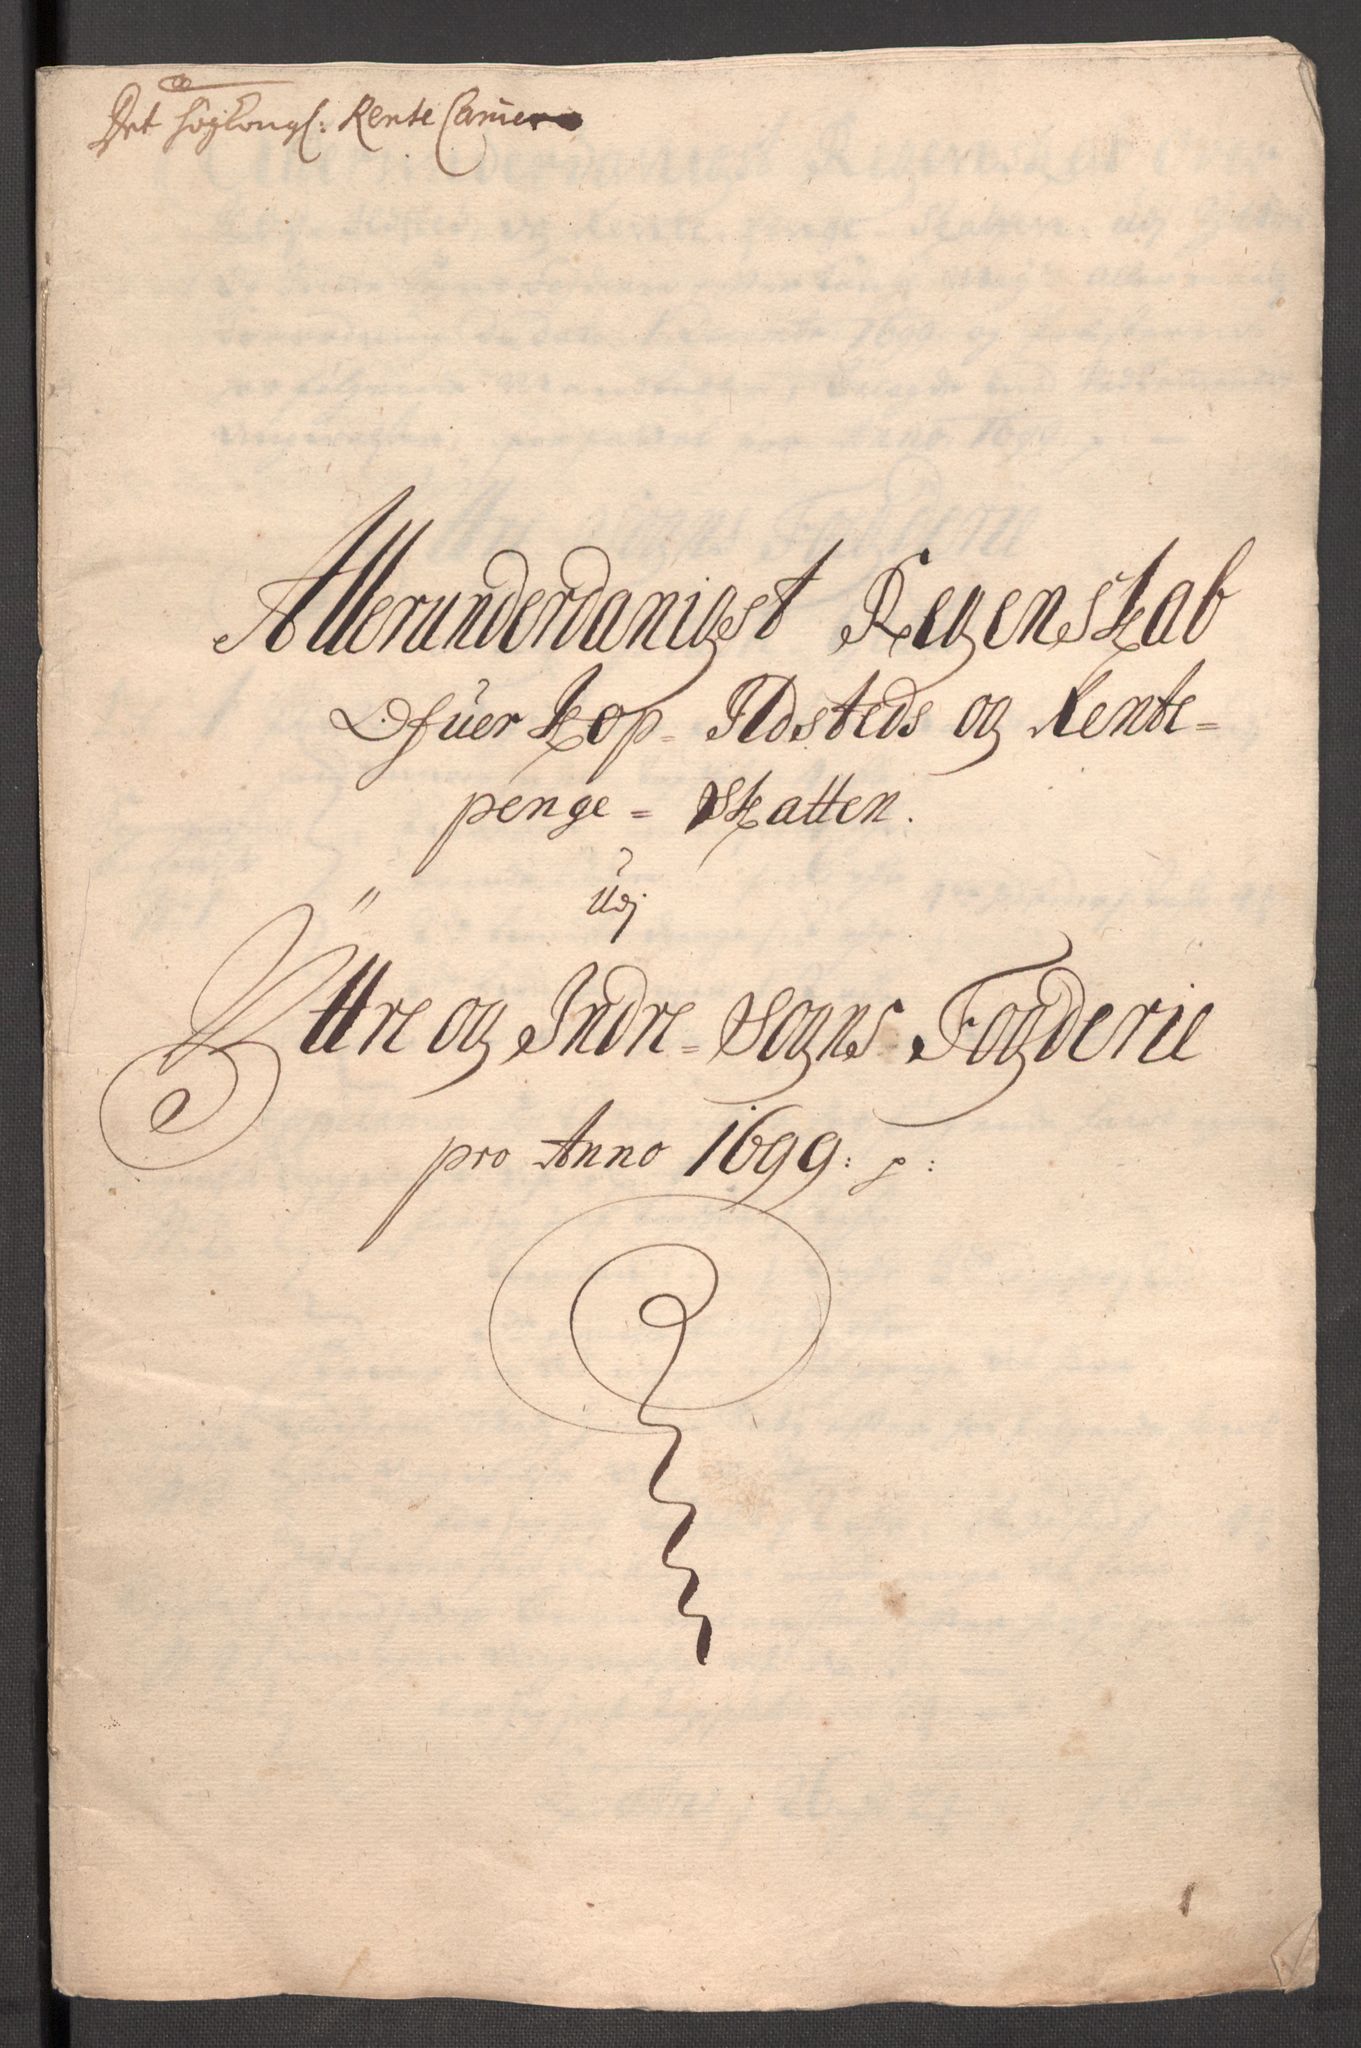 Det Høykongl: Rente Camer
Allerunderdanigst Regenskab
Ofuer Kop- Ildsteds og Rente-
penge- Skatten.
Udj
Ÿttre og Indre- Sogns Fogderie
pro Anno 1699: p:
1